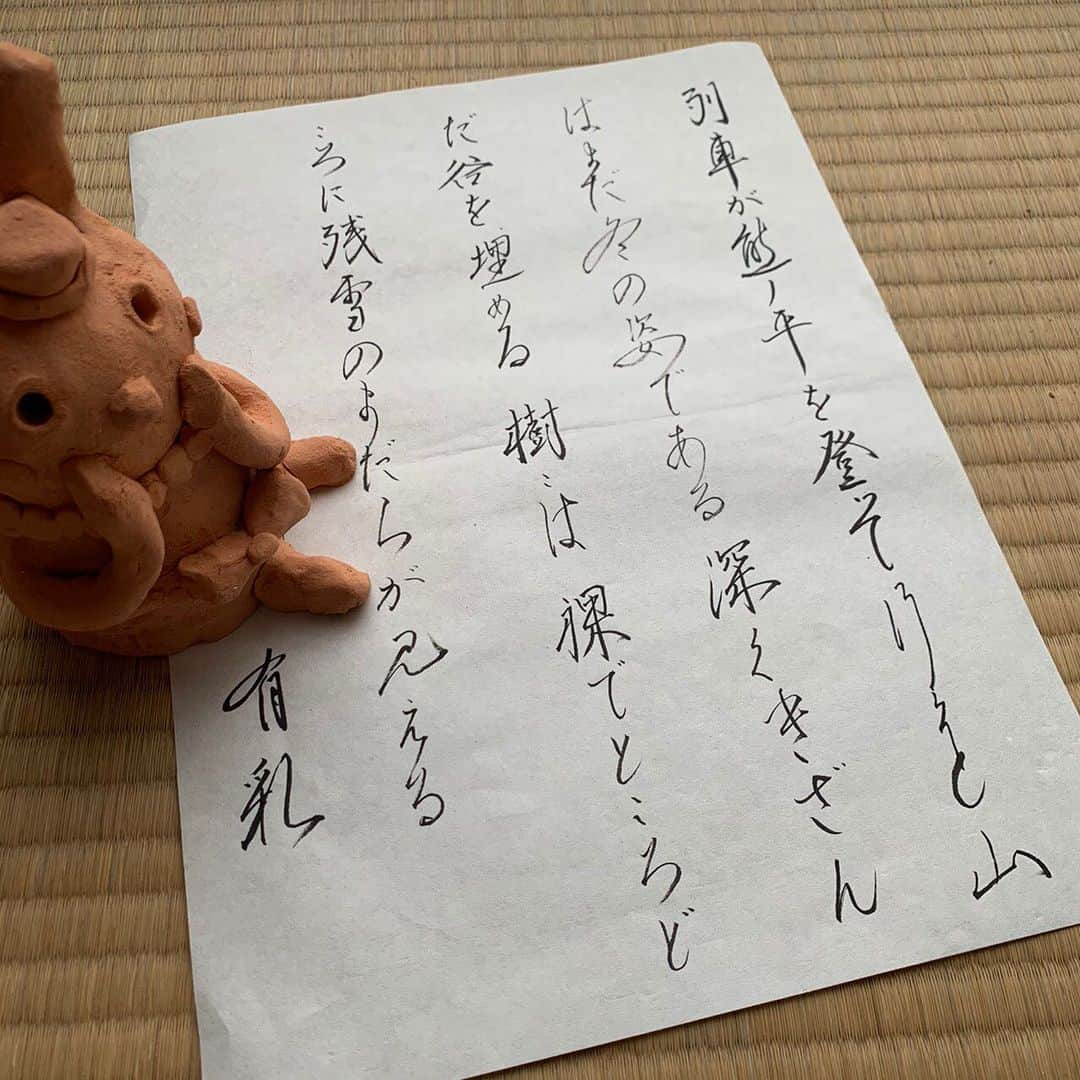 列車が熊ノ平を登って行くと山
はまだ冬の姿である 深くきざん
だ谷を埋める 樹々は裸でところど
ころに残雪のまだらが見える
有乳